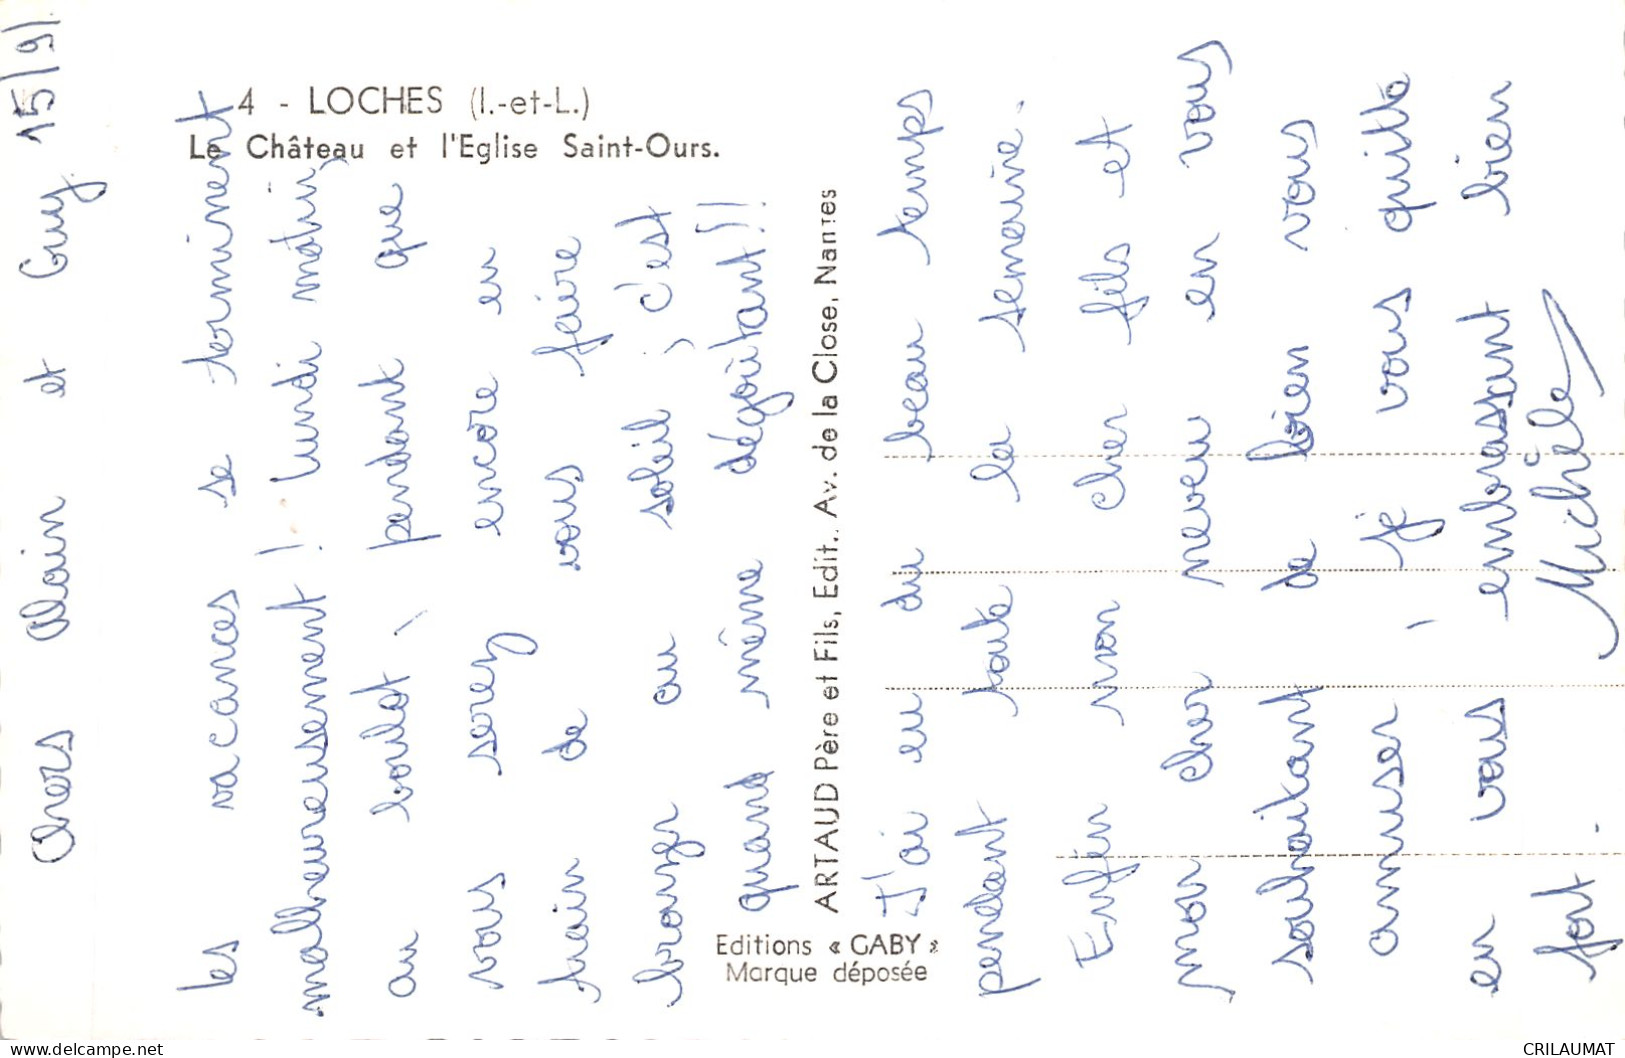 4 - LOCHES (I.-et-L.)
Le Château et l'Eglise Saint-Ours.
15/9/
Chers Alain et Guy
les vacances se terminent
malheureusement ! lundi matin
au boulot, pendant que
vous serez encore en
train de vous faire
bronzer au soleil, c'est
quand même dégoûtant!!!
ARTAUD Père et Fils, Edit., Av. de la Close, Nantes
Editions « GABY »
Marque déposée
J'ai eu du beau temps
pendant toute la semaine.
Enfin mon cher fils et
mon cher neveu en vous
souhaitant de bien vous
amuser, je vous quitte
en vous embrassant bien
fort.
Michèle
delcampe.net
CRILAUMAT